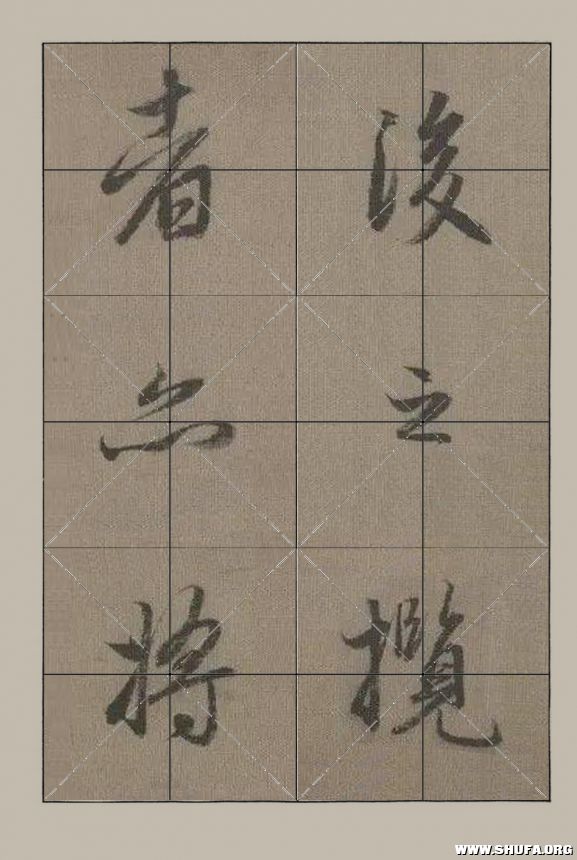 後之攬
者亦將
WWW.SHUFA.ORG